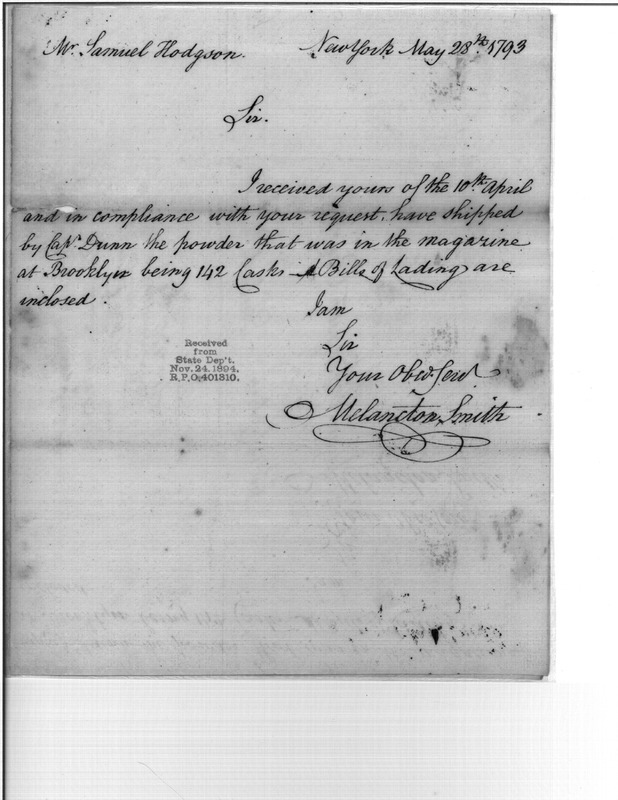 Mr. Samuel Hodgson. New York May 28th. 1793
Sir.
I received yours of the 10th. April
and in compliance with your request, have shipped
by Capn. Dunn the powder that was in the magazine
at Brooklyn being 142 Casks — Bills of Lading are
inclosed.
I am
Sir
Your Obed. Servt.
Melancton Smith
Received
from
State Dep't.
Nov. 24. 1894.
R.P.O. 401310.